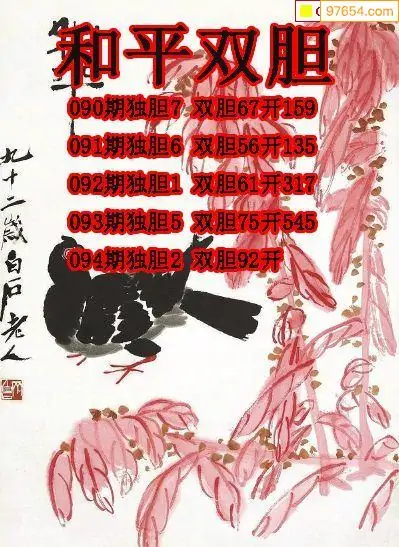 97654.com
和平双胆
090期独胆7 双胆67开159
091期独胆6 双胆56开135
092期独胆1 双胆61开317
093期独胆5 双胆75开545
094期独胆2 双胆92开
九十二岁白石老人